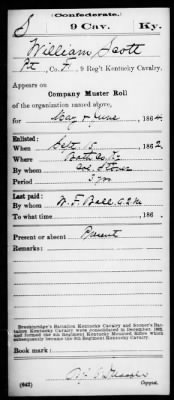 Confederate.
S 9 Cav. Ky.
William Scott
Pt, Co. F, 9 Reg't Kentucky Cavalry.
Appears on
Company Muster Roll
of the organization named above,
for May & June, 1864.
Enlisted:
When Sept. 15, 1862
Where Bath Co. Ky
By whom Col. Stoner
Period 3 yrs
Last paid:
By whom W. F. Bell, A.Q.M.
To what time , 186 .
Present or absent Present
Remarks:
Breckinridge's Battalion Kentucky Cavalry and Stoner's Battalion Kentucky Cavalry were consolidated in December, 1862, and formed the 9th Regiment Kentucky Mounted Rifles which subsequently became the 9th Regiment Kentucky Cavalry.
Book mark:
(642)
Copyist.